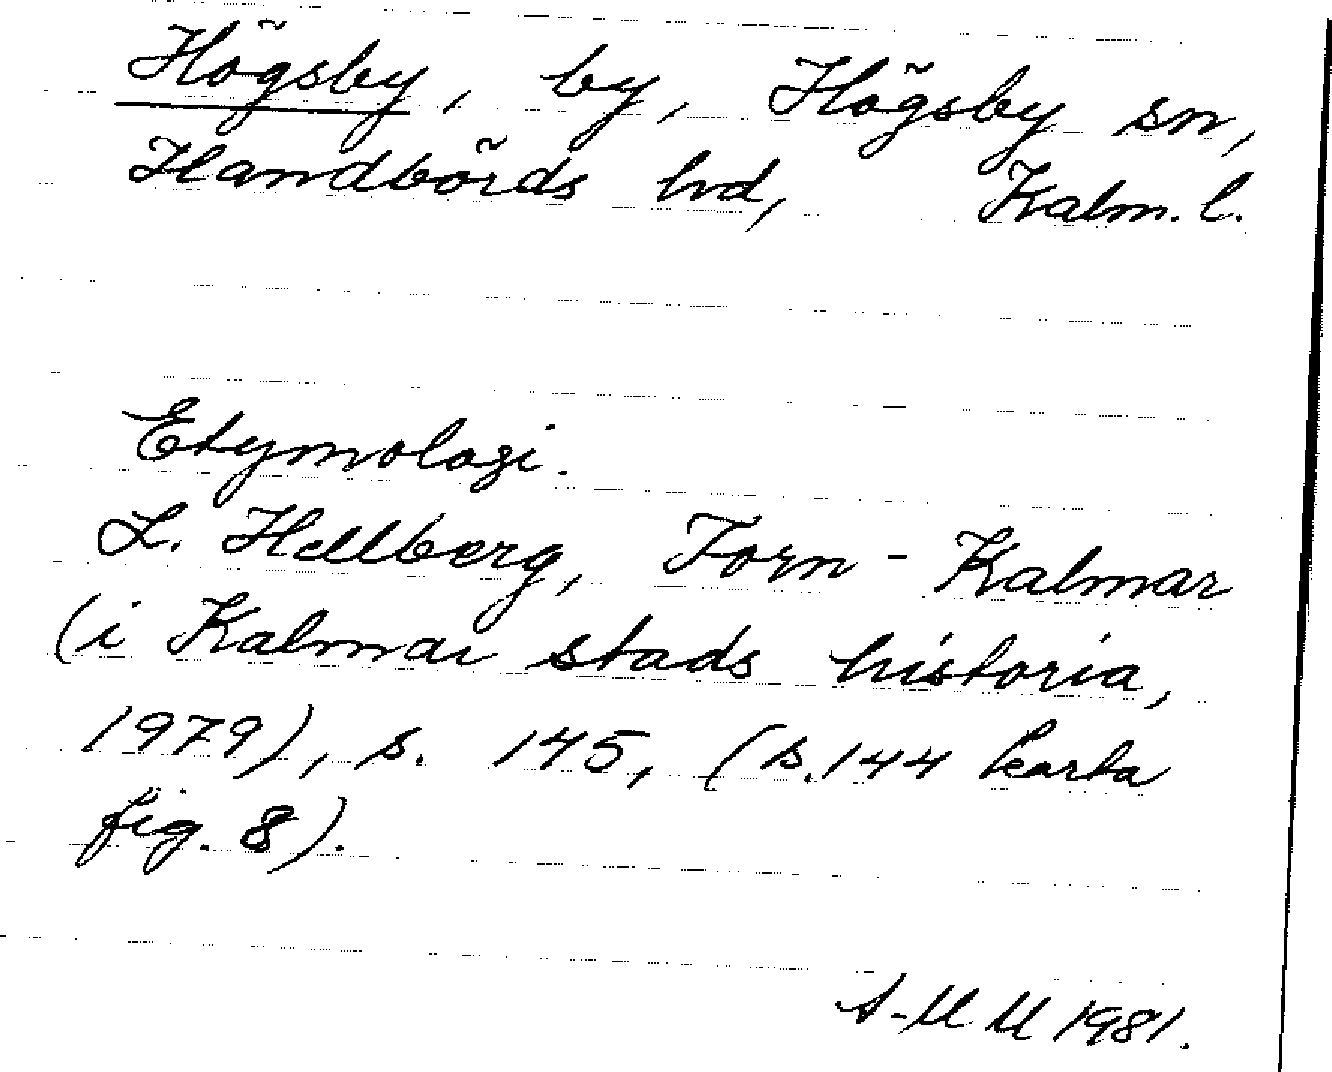 Högsby, by, Högsby sn,
Handbörds hd, Kalm. l.
Etymologi.
L. Hellberg, Forn-Kalmar
(i Kalmar stads historia,
1979), s. 145, (s. 144 karta
fig. 8).
A-M M 1981.